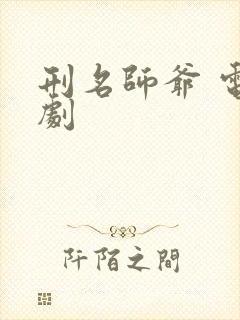 刑名師爺 電
劇
阡陌之間